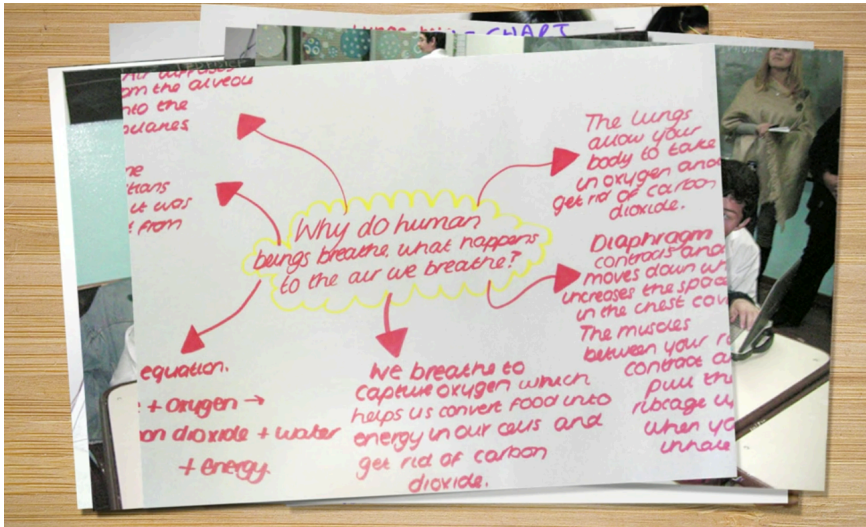 CHART
from the alveou
into the
it was
from
Why do human
beings breathe, what happens
to the air we breathe?
The lungs
allow your
body to take
in oxygen and
get rid of carbon
dioxide.
Diaphragm
contracts and
moves down
increases the space
in the chest
The muscles
between your
contract
pull
ribcage
when
inhale
equation.
+ oxygen →
dioxide + water
+ energy
We breathe to
capture oxygen which
helps us convert food into
energy in our cells and
get rid of carbon
dioxide.